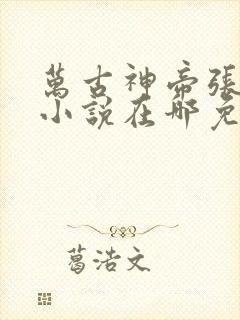 萬古神帝張
小說在哪免
葛浩文